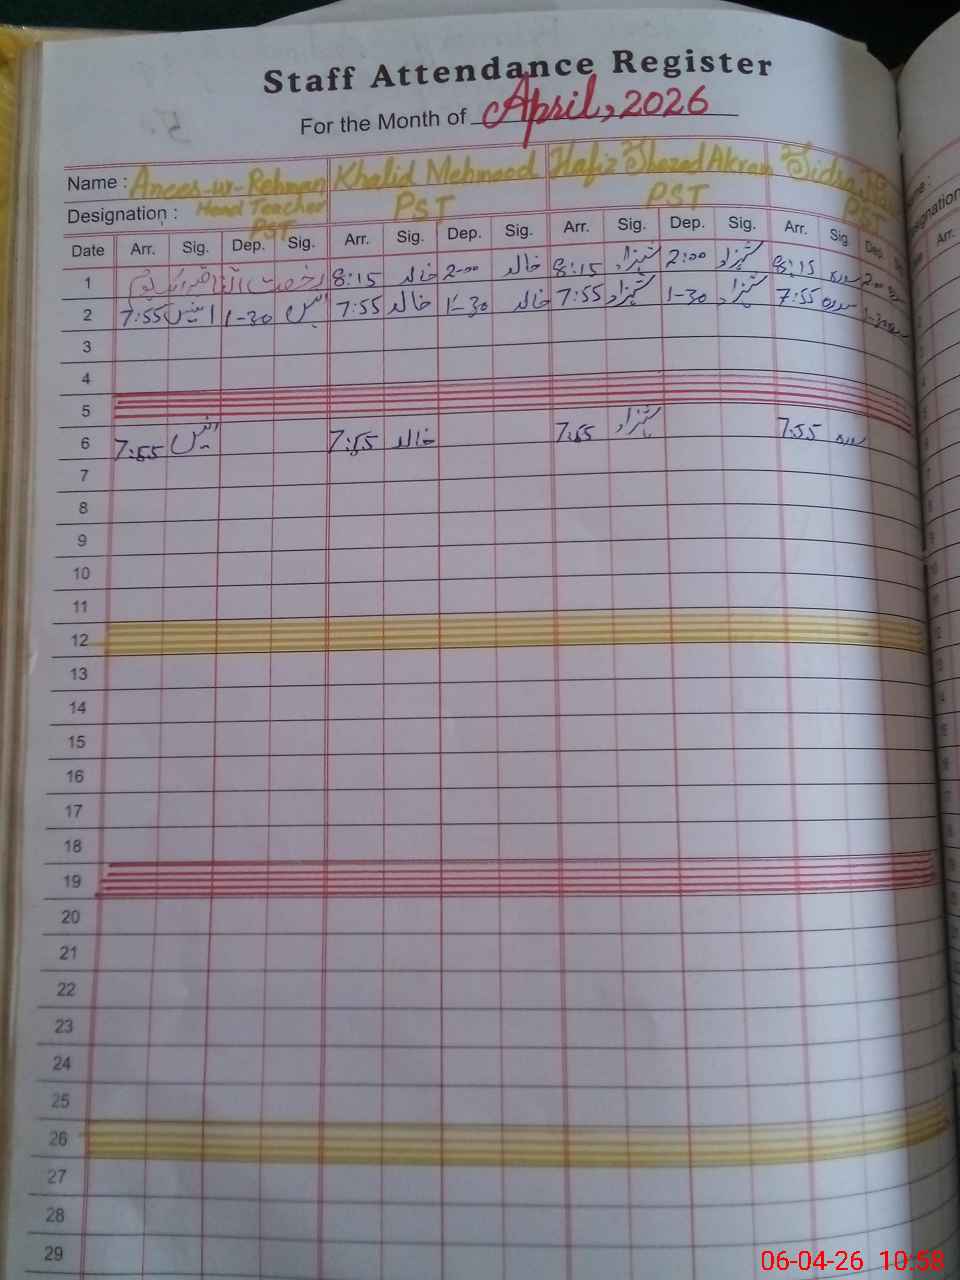 Staff Attendance Register
For the Month of April, 2026
Name : Anees-ur-Rehman Khalid Mehmood Hafiz Shazad Akram Sidra
Designation : Head Teacher PST PST PST PST
Date Arr. Sig. Dep. Sig. Arr. Sig. Dep. Sig. Arr. Sig. Dep. Sig. Arr. Sig. Dep.
1 8:15 خالد 2:00 خالد 8:15 شہزاد 2:00 شہزاد 8:15 سدرہ 2:00
2 7:55 انیس 1-30 انیس 7:55 خالد 1-30 خالد 7:55 شہزاد 1-30 شہزاد 7:55 سدرہ 1-30
3
4
5
6 7:55 انیس 7:55 خالد 7:55 شہزاد 7:55 سدرہ
7
8
9
10
11
12
13
14
15
16
17
18
19
20
21
22
23
24
25
26
27
28
29
06-04-26 10:58